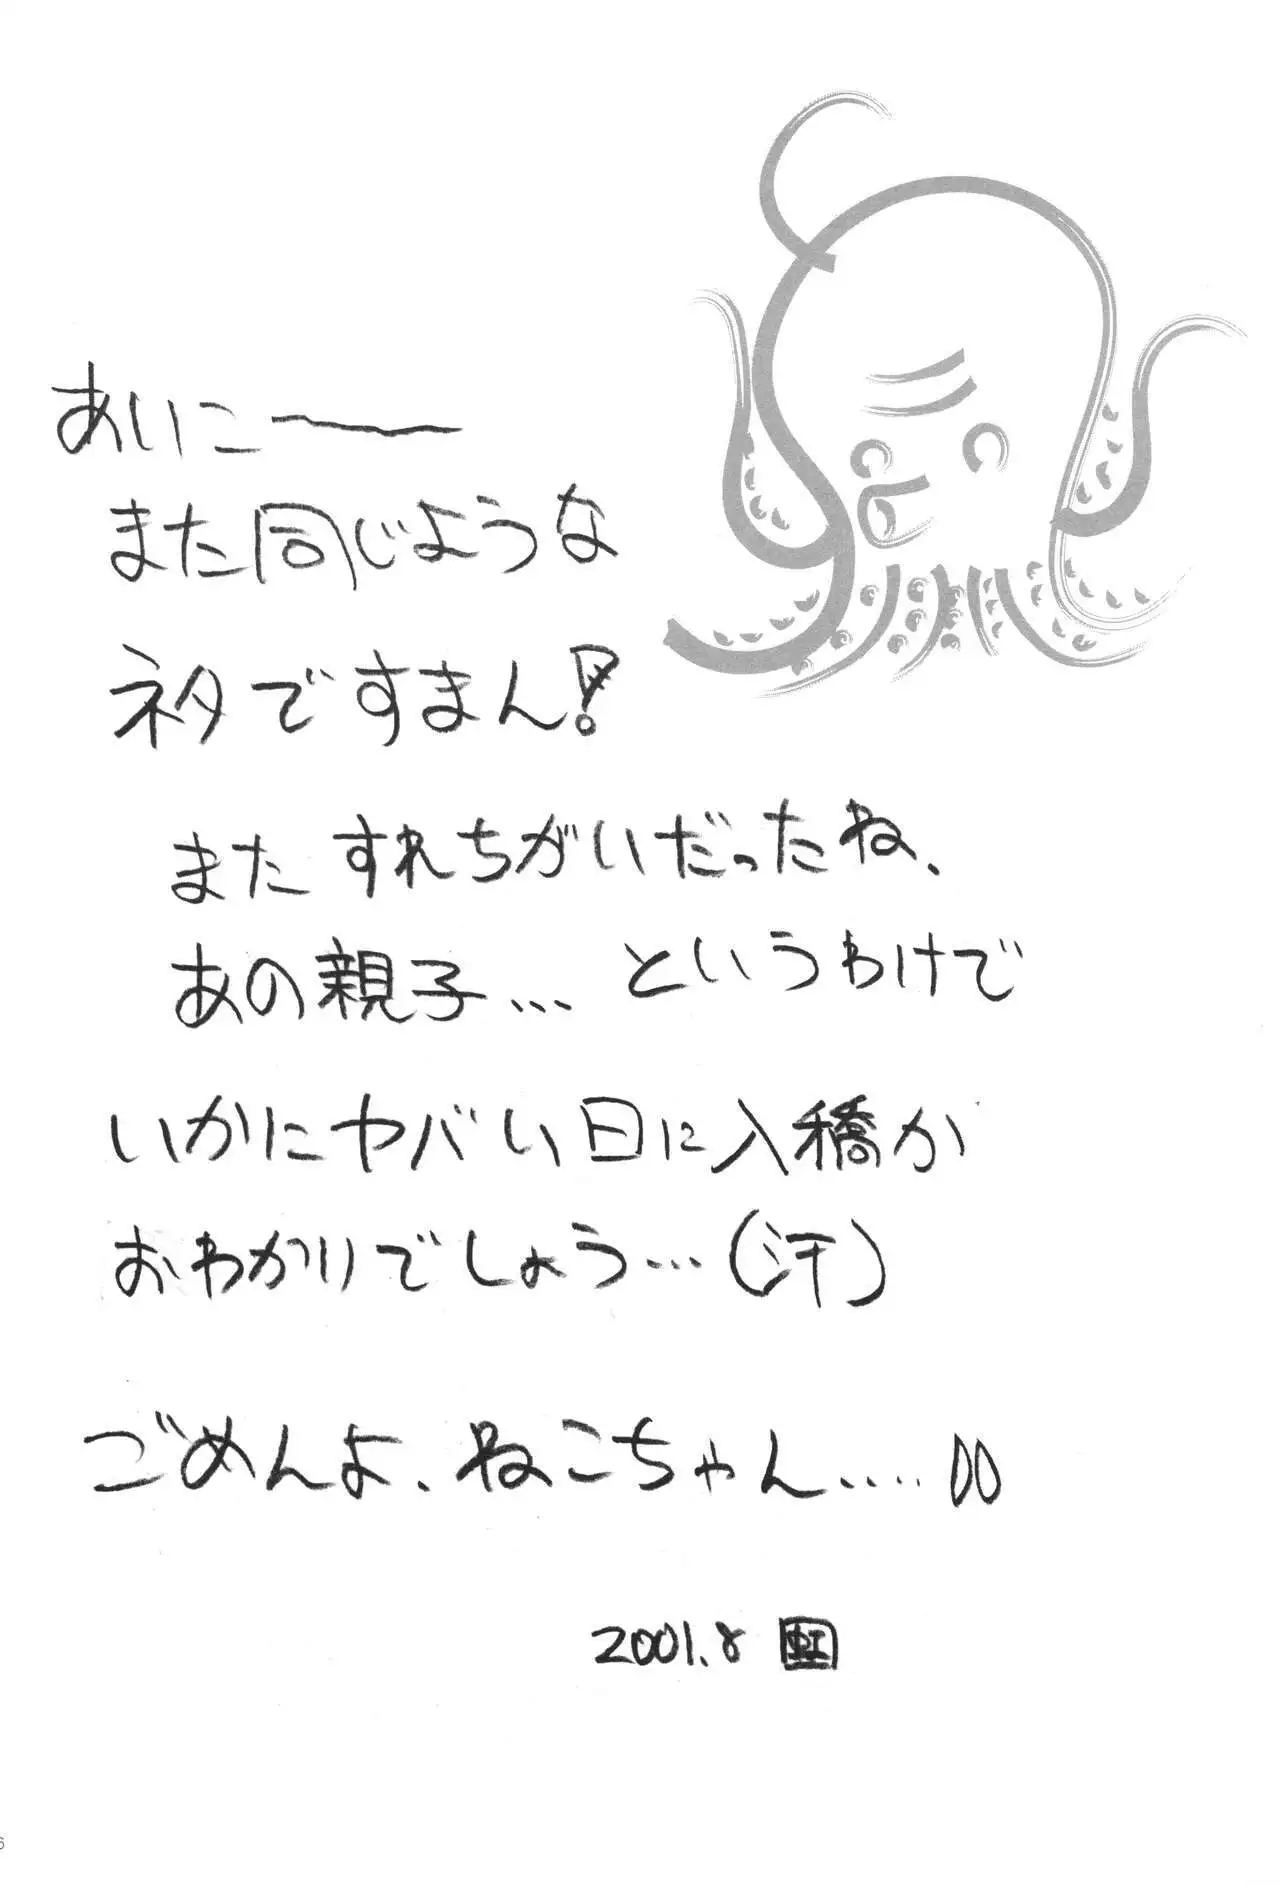 あいこー
また同じような
ネタですまん!
またすれちがいだったね、
あの親子… というわけで
いかにヤバい日に入稿か
おわかりでしょう…(汗)
ごめんよ、ねこちゃん‥‥
2001.8 虹
6